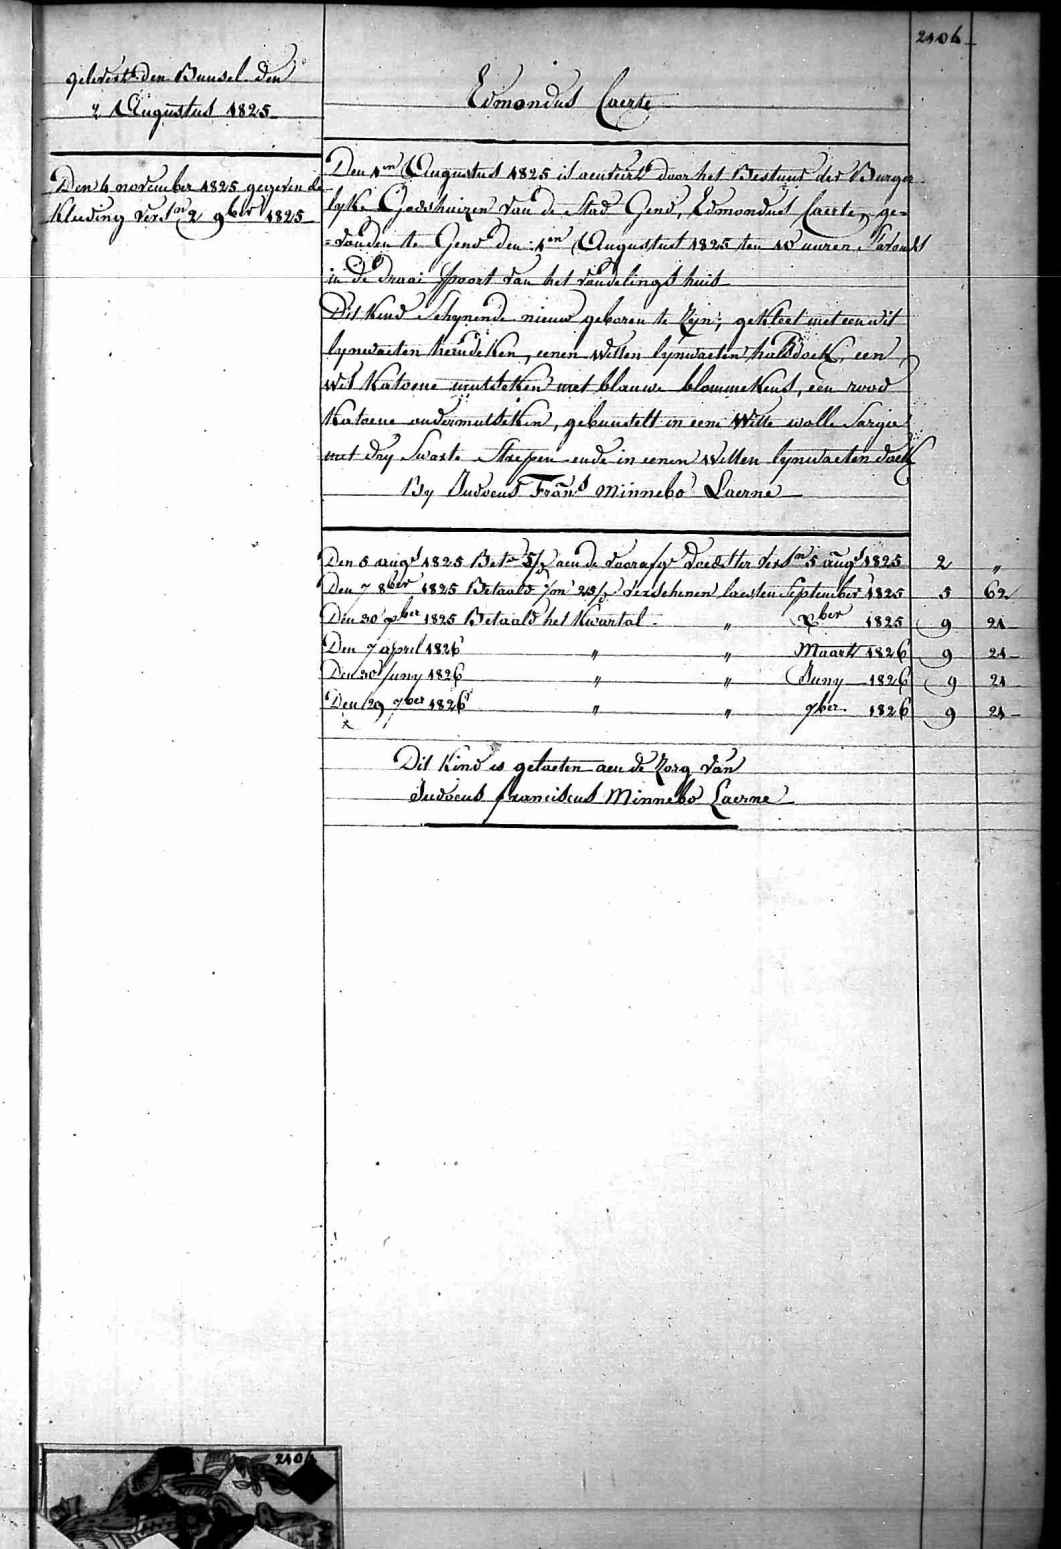 2404
gelevert den Bunsel den
2 Augustus 1825
Edmondus Caerte
Den 4 november 1825 gegeven de
Kleeding versn 2 9ber 1825
Den 1en Augustus 1825 is aenveird door het Bestuur der Burger-
lyke Godshuizen van de Stad Gend, Edmondus Caerte, ge=
=vonden te Gend den 1en Augustus 1825 ten 10 uuren S'avonds
in de Draai Poort van het vondelingshuis
Dit Kind Schynende nieuw geboren te Zyn; gekleet met een wit
lynwaeten hemdeken, eenen witten lynwaeten halsdoek, een
wit Katoene mutseken met blauwe blommekens, een rood
Katoene ondermutseken, gebunselt in eene Witte wolle Sargie
met dry Swarte Strepen ende in eenen witten lynwaeten doek
By Judocus Frans Minnebo Laerne
Den 5 augs 1825 Bet. aen de voorafge Voedster versn 5 augs 1825 2 "
Den 7 8ber 1825 Betaald Verschenen laesten September 1825 5 62
Den 30 xber 1825 Betaald het Kwartal " Xber 1825 9 24
Den 7 april 1826 " " Maart 1826 9 24
Den 30 Juny 1826 " " Juny 1826 9 24
Den 29 7ber 1826 " " 7ber 1826 9 24
Dit Kind is gelaeten aen de Zorg van
Judocus franciscus Minnebo Laerne
2404